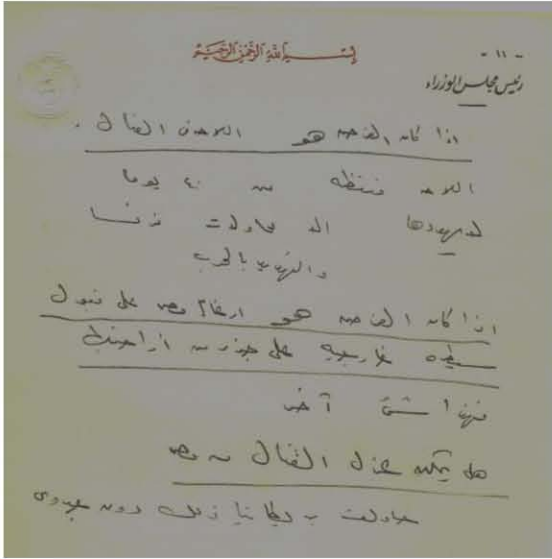 - ١١ -
بسم الله الرحمن الرحيم
رئيس مجلس الوزراء
اذا كان الغرض هو الملاحة في القنال .
الملاحة منتظمة من ٤٠ يوما
لم يهددها الا محاولات فرنسا
والتهديد بالحرب
اذا كان الغرض هو ارغام مصر على قبول
سيطرة خارجية على جزء من اراضيها
فهذا شئ آخر
هل يمكن عزل القنال من مصر
حاولت بريطانيا ذلك دون جدوى